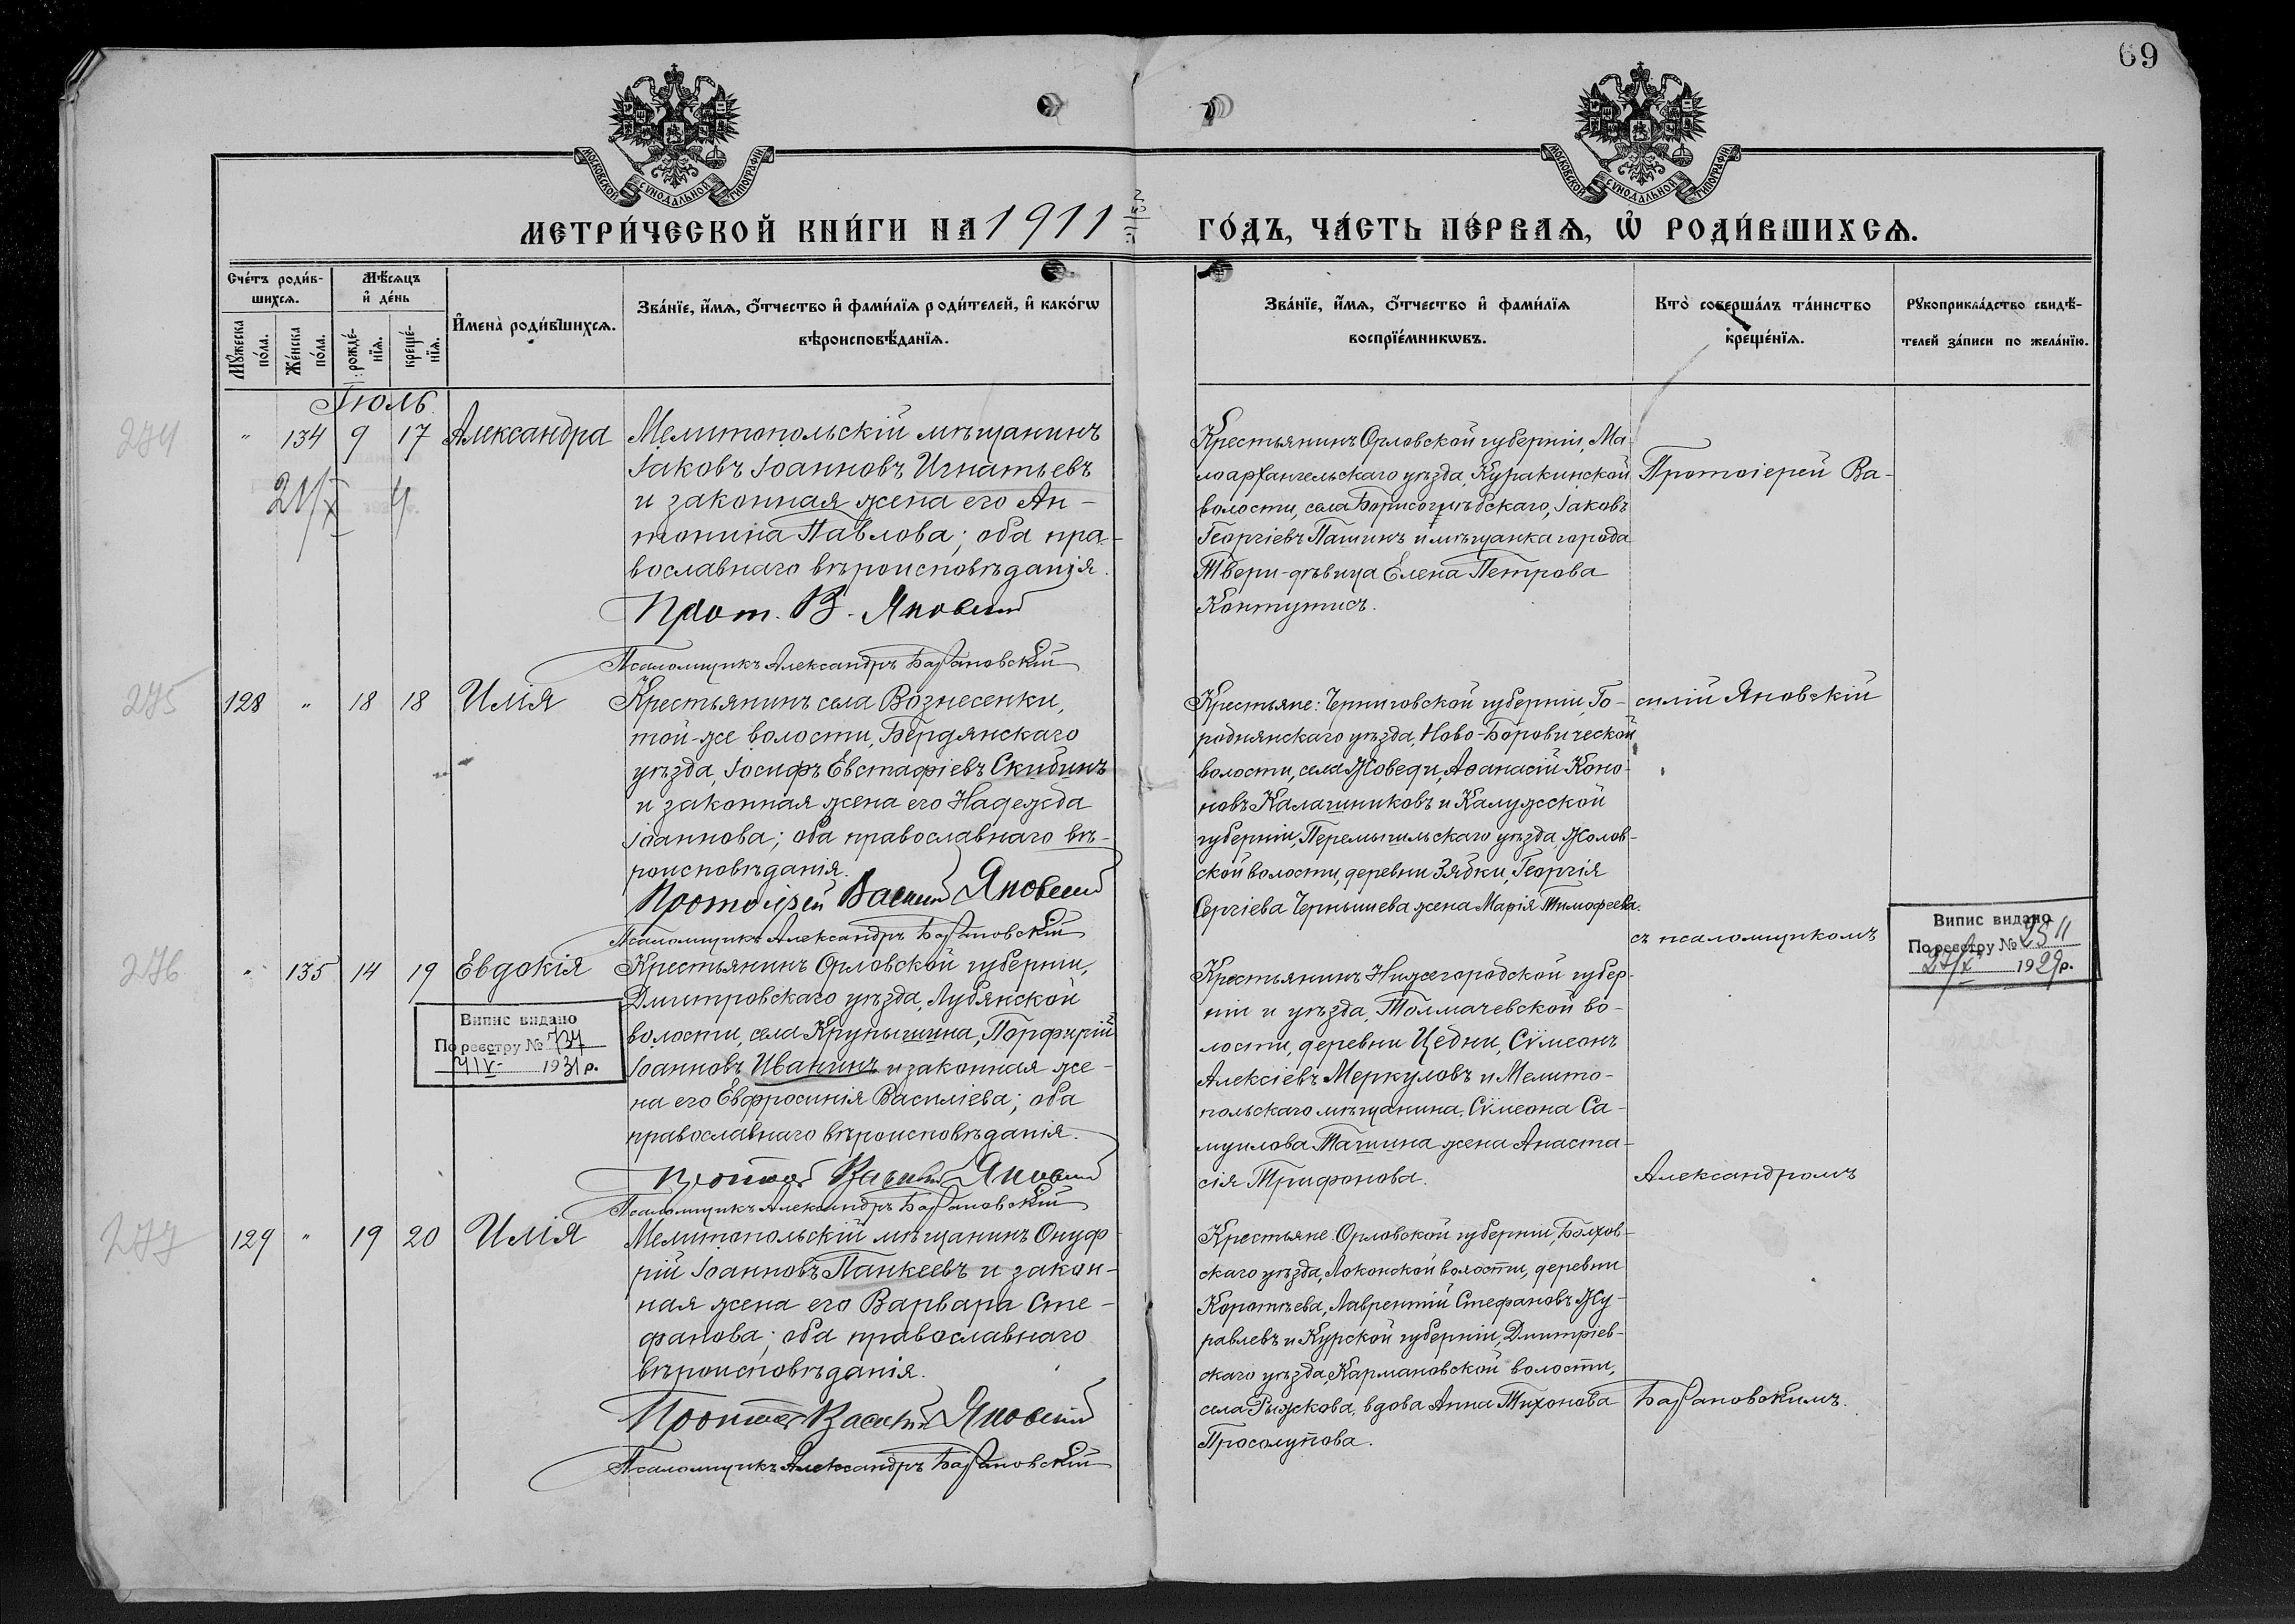 69
МОСКОВСКОЙ СѴНОДАЛЬНОЙ ТИПОГРАФІИ
МОСКОВСКОЙ СѴНОДАЛЬНОЙ ТИПОГРАФІИ
МЕТРИ́ЧЕСКОЙ КНИ́ГИ НА 1911
ГО́ДЪ, ЧА́СТЬ ПЕ́РВАѦ, Ѽ РОДИ́ВШИХСѦ.
Сче́тъ роди́в-
шихсѧ.
Мꙋ́жеска
по́ла.
Же́нска
по́ла.
Мѣ́сѧцъ
и҆ де́нь
рожде́-
нїѧ.
креще́-
нїѧ.
И҆мена̀ роди́вшихсѧ.
Зва́нїе, и҆́мѧ, ѻ҆́тчество и҆ фами́лїѧ роди́телей, и҆ како́гѡ
вѣроисповѣ́данїѧ.
Зва́нїе, и҆́мѧ, ѻ҆́тчество и҆ фами́лїѧ
воспрїе́мникѡвъ.
Кто̀ соверша́лъ та́инство
креще́нїѧ.
Рꙋкоприкла́дство свидѣ́-
телей за́писи по жела́нїю.
Іюль
274
" 134 9 17 Александра
Мелитопольскій мѣщанинъ
Іаковъ Іоанновъ Игнатьевъ
и законная жена его Ан-
тонина Павлова; оба пра-
вославнаго вѣроисповѣданія.
Прот. В. Яновскій
Псаломщикъ Александръ Барановскій
Крестьянинъ Орловской губерніи, Ма-
лоархангельскаго уѣзда, Куракинской
волости, села Борисоглѣбскаго, Іаковъ
Георгіевъ Пашинъ и мѣщанка города
Твери-дѣвица Елена Петрова
Контутисъ.
Протоіерей Ва-
275
128 " 18 18 Илія
Крестьянинъ села Вознесенки,
той-же волости, Бердянскаго
уѣзда, Іосифъ Евстафіевъ Скибинъ
и законная жена его Надежда
Іоаннова; оба православнаго вѣ-
роисповѣданія.
Протоіерей Василій Яновскій
Псаломщикъ Александръ Барановскій
Крестьяне: Черниговской губерніи, Го-
роднянскаго уѣзда, Ново-Боровической
волости, села Жоведи, Аѳанасій Коно-
новъ Калашниковъ и Калужской
губерніи, Перемышльскаго уѣзда, Желов-
ской волости, деревни Зябки, Георгія
Сергіева Чернышева жена Марія Тимофеева.
силій Яновскій
съ псаломщикомъ
Випис видано
По реєстру № 2511
27/X 1929 р.
276
" 135 14 19 Евдокія
Випис видано
По реєстру № 734
4/V 1931 р.
Крестьянинъ Орловской губерніи,
Дмитровскаго уѣзда, Лубянской
волости, села Крупышина, Порфирій
Іоанновъ Иванинъ и законная же-
на его Евфросинія Василіева; оба
православнаго вѣроисповѣданія.
Протоіерей Василій Яновскій
Псаломщикъ Александръ Барановскій
Крестьянинъ Нижегородской губер-
ніи и уѣзда, Толмачевской во-
лости, деревни Цедни, Сѵмеонъ
Алексіевъ Меркуловъ и Мелито-
польскаго мѣщанина Сѵмеона Са-
муилова Ташина жена Анаста-
сія Трифонова.
Александромъ
277
129 " 19 20 Илія
Мелитопольскій мѣщанинъ Онуф-
рій Іоанновъ Панкеевъ и закон-
ная жена его Варвара Сте-
фанова; оба православнаго
вѣроисповѣданія.
Протоіерей Василій Яновскій
Псаломщикъ Александръ Барановскій
Крестьяне: Орловской губерніи, Болхов-
скаго уѣзда, Локонской волости, деревни
Коротѣева, Лаврентій Стефановъ Жу-
равлевъ и Курской губерніи, Дмитріев-
скаго уѣзда, Кармановской волости,
села Рыжкова, вдова Анна Тихонова
Просолупова.
Барановскимъ.